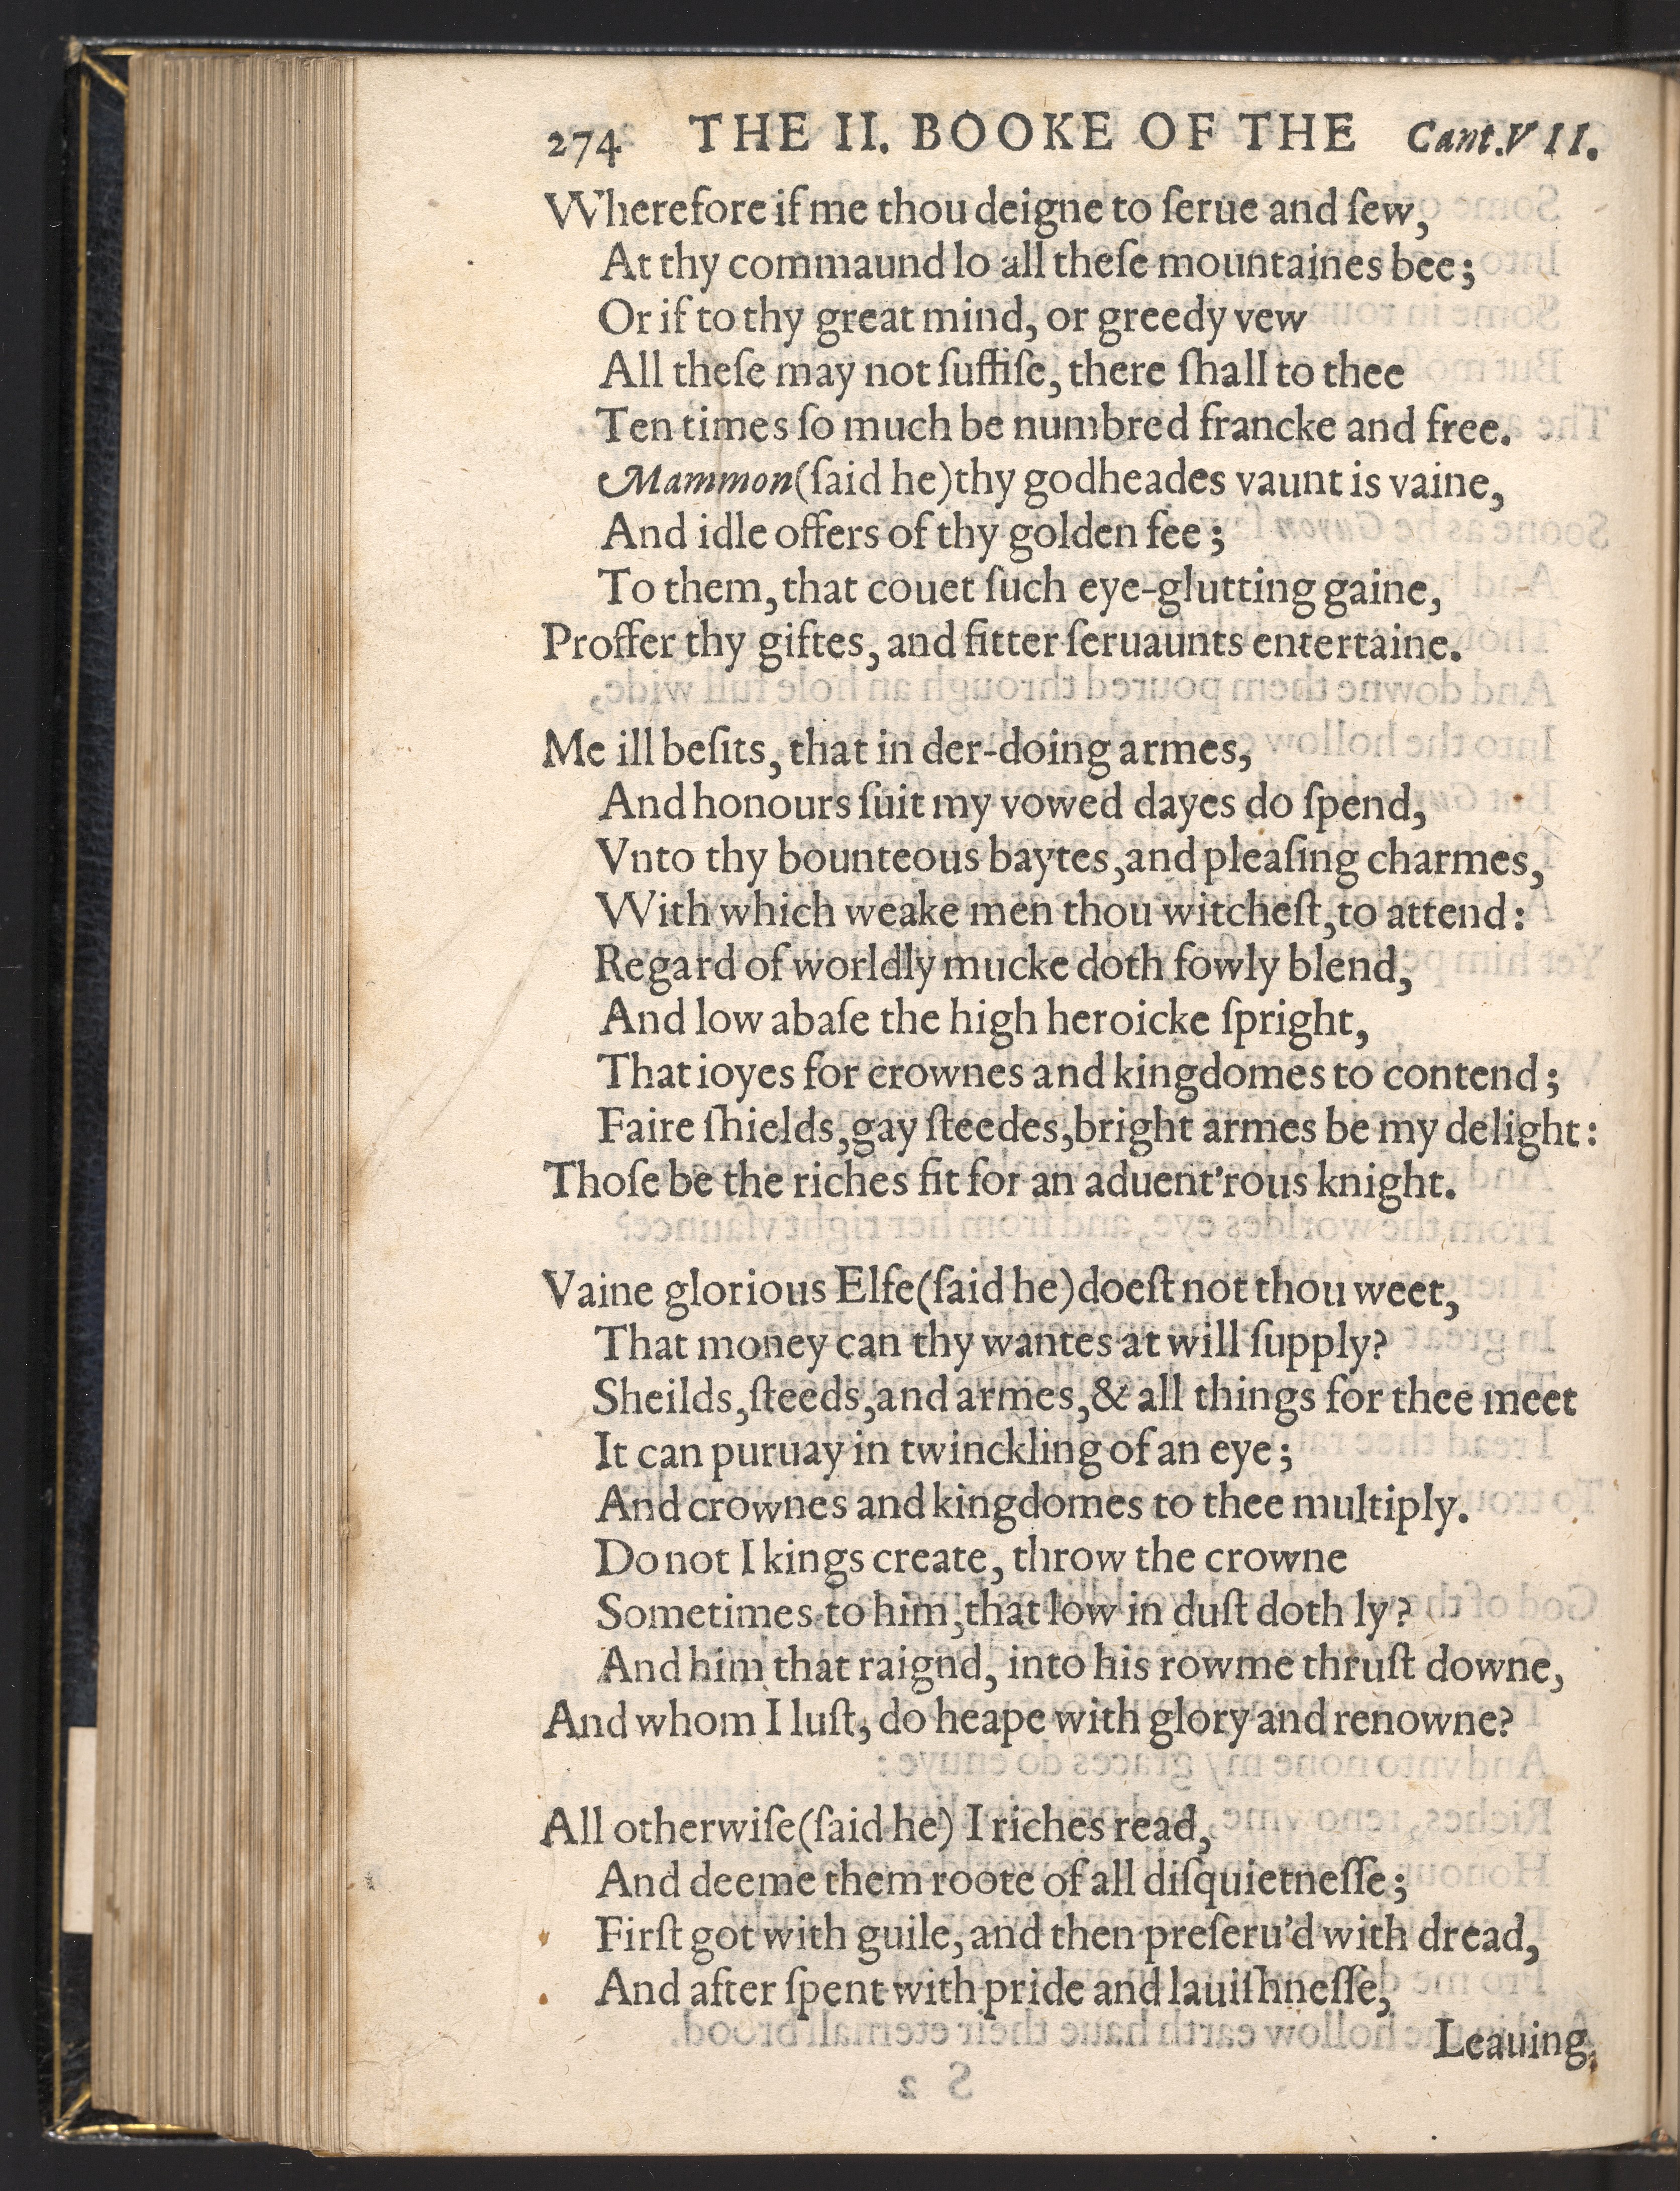 274 THE II. BOOKE OF THE Cant.VII.
Wherefore if me thou deigne to ſerue and ſew,
At thy commaund lo all theſe mountaines bee;
Or if to thy great mind, or greedy vew
All theſe may not ſuffiſe, there ſhall to thee
Ten times ſo much be numbred francke and free.
Mammon (ſaid he) thy godheades vaunt is vaine,
And idle offers of thy golden fee;
To them, that couet ſuch eye-glutting gaine,
Proffer thy giftes, and fitter ſeruaunts entertaine.
Me ill beſits, that in der-doing armes,
And honours ſuit my vowed dayes do ſpend,
Vnto thy bounteous baytes, and pleaſing charmes,
With which weake men thou witcheſt, to attend:
Regard of worldly mucke doth fowly blend,
And low abaſe the high heroicke ſpright,
That ioyes for crownes and kingdomes to contend;
Faire ſhields, gay ſteedes, bright armes be my delight:
Thoſe be the riches fit for an aduent'rous knight.
Vaine glorious Elfe (ſaid he) doeſt not thou weet,
That money can thy wantes at will ſupply?
Sheilds, ſteeds, and armes, & all things for thee meet
It can puruay in twinckling of an eye;
And crownes and kingdomes to thee multiply.
Do not I kings create, throw the crowne
Sometimes to him, that low in duſt doth ly?
And him that raignd, into his rowme thruſt downe,
And whom I luſt, do heape with glory and renowne?
All otherwiſe (ſaid he) I riches read,
And deeme them roote of all diſquietneſſe;
Firſt got with guile, and then preſeru'd with dread,
And after ſpent with pride and lauiſhneſſe,
Leauing